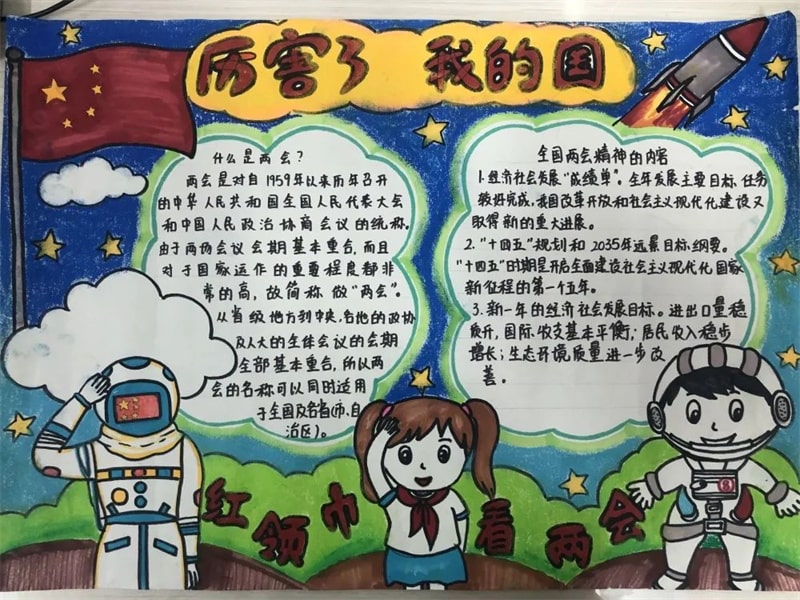 厉害了 我的国
什么是两会?
两会是对自1959年以来历年召开
的中华人民共和国全国人民代表大会
和中国人民政治协商会议的统称。
由于两场会议会期基本重合,而且
对于国家运作的重要程度都非
常的高,故简称做"两会"。
从省级地方到中央,各地的政协
及人大的全体会议的会期
全部基本重合,所以两
会的名称可以同时适用
于全国及各省(市、自
治区)。
全国两会精神的内容
1.经济社会发展"成绩单"。全年发展主要目标、任务
较好完成,我国改革开放和社会主义现代化建设又
取得新的重大进展。
2."十四五"规划和2035年远景目标纲要。
"十四五"时期是开启全面建设社会主义现代化国家
新征程的第一个五年。
3.新一年的经济社会发展目标。进出口量稳
质升,国际收支基本平衡;居民收入稳步
增长;生态环境质量进一步改
善。
红领巾看两会